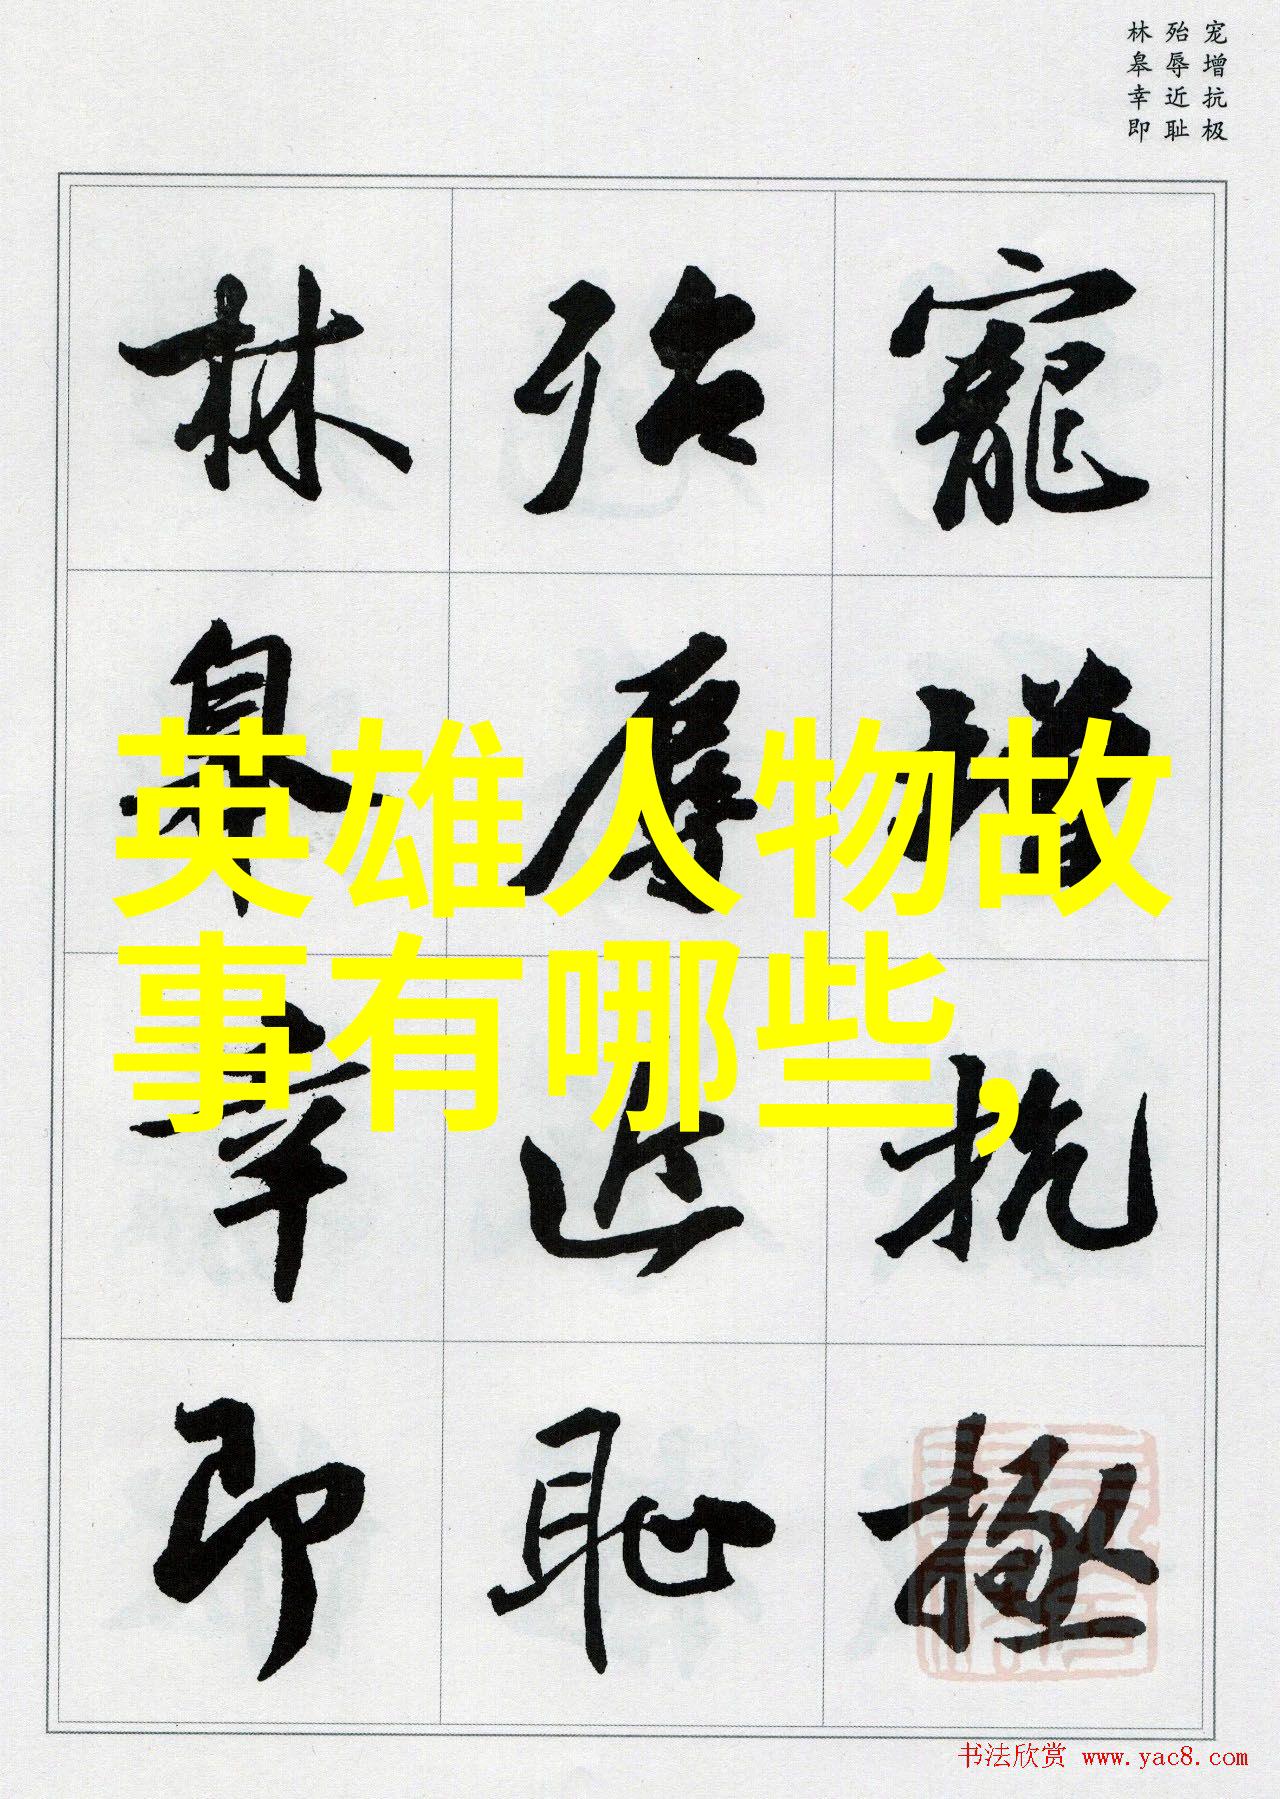 宠增抗极
殆辱近耻
林皋幸即
寵增抗極
殆辱近恥
林皋幸即
英雄人物故
事有哪些,
书法欣赏 www.yac8.com